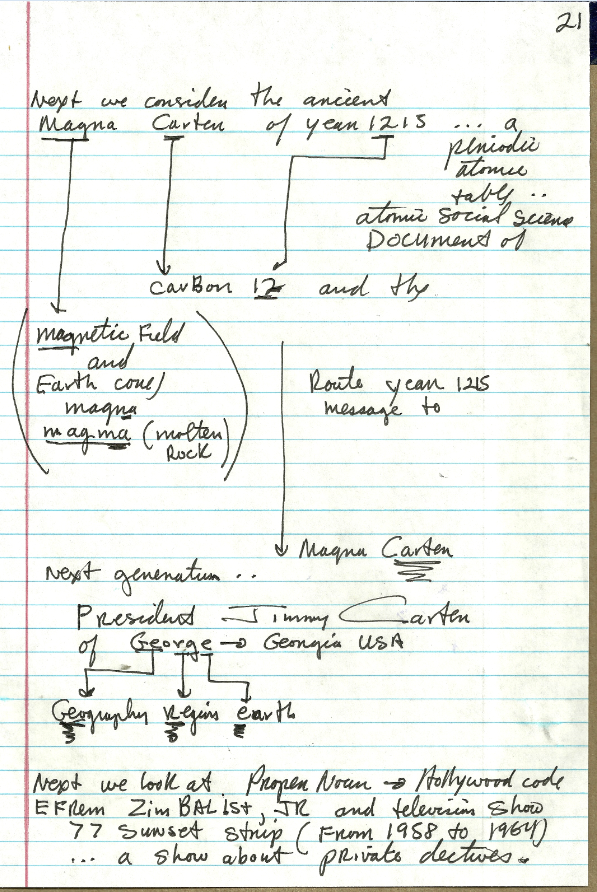 21
Next we consider the ancient
Magna Carter of year 1215 ... a
periodic
atomic
table ..
atomic social science
Document of
carBon 12 and the
magnetic Field
and
Earth core/
magna
magma (molten
Rock)
Route year 1215
message to
Magna Carter
Next generation ..
President Jimmy Carter
of George → Georgia USA
Geography region earth
Next we look at Proper Noun → Hollywood code
EFrem Zim BALIst, JR and television show
77 Sunset Strip (From 1958 to 1964)
... a show about private dectives.